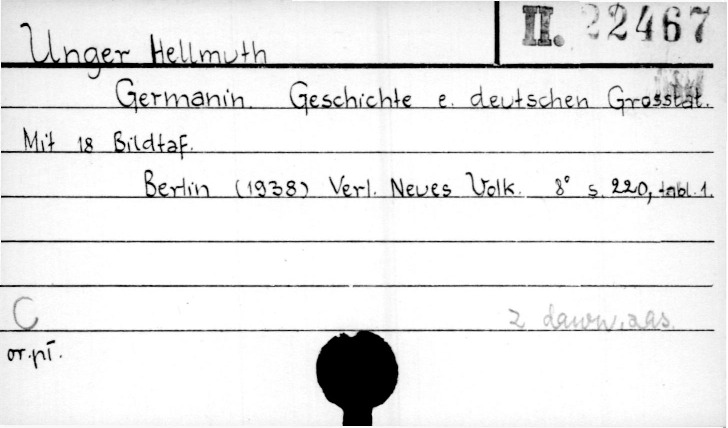 Unger Hellmuth
II. 22467
Germanin. Geschichte e. deutschen Grosstat.
Mit 18 Bildtaf.
Berlin (1938) Verl. Neues Volk. 8° s. 220, tabl. 1.
C
z dawn. zas.
or. pł.